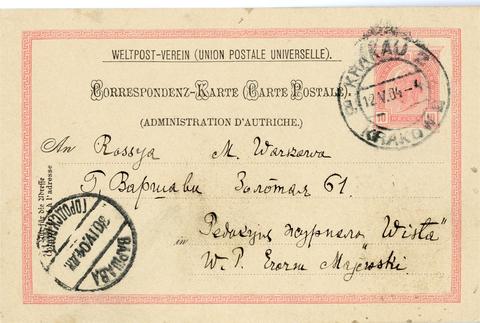 WELTPOST-VEREIN (UNION POSTALE UNIVERSELLE).
CORRESPONDENZ-KARTE (CARTE POSTALE).
(ADMINISTRATION D'AUTRICHE.)
KRAKAU 2
12.V.04
KRAKÓW 2
10 10
An Rossya M. Warszawa
Г. Варшава Золотая 61
in Редакция журнала "Wisła"
W. P. Erazm Majewski
für die Adresse
à l'adresse
ВАРШАВА